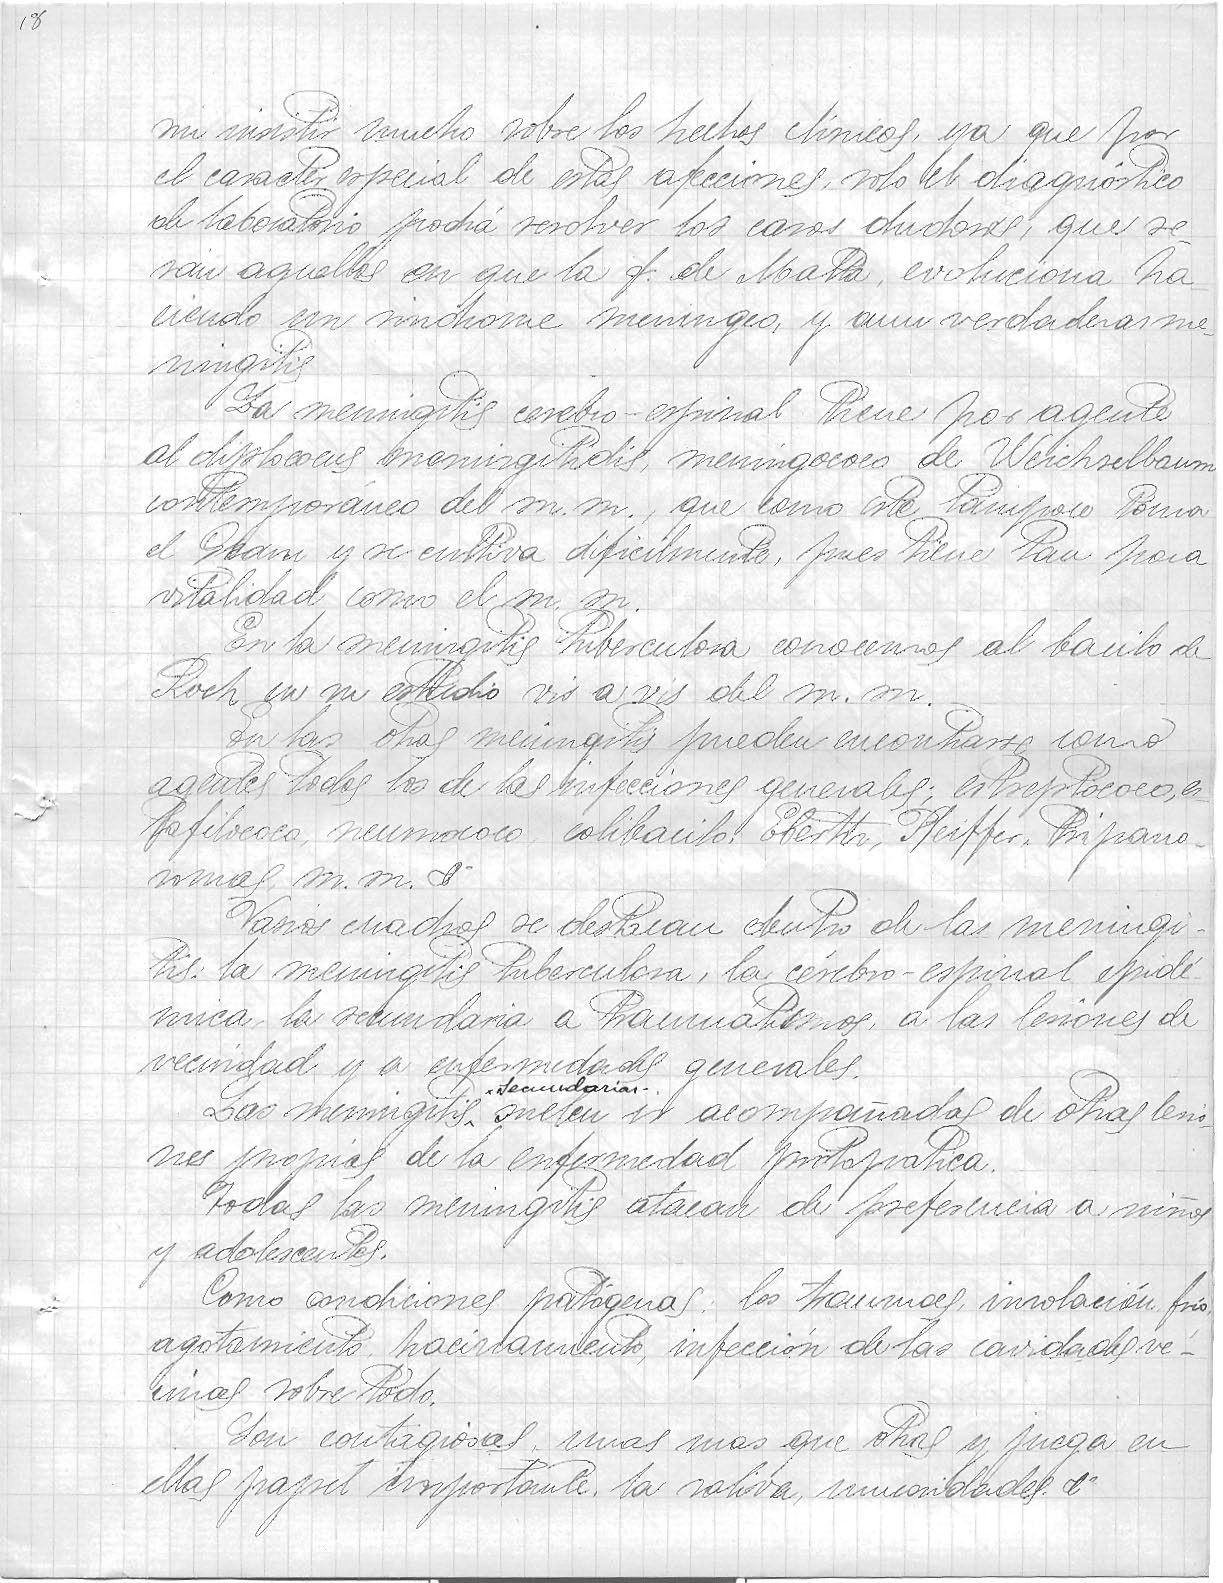 18
sin insistir mucho sobre los hechos clínicos, ya que por
el caracter especial de estas afecciones, solo el diagnóstico
de laboratorio podrá resolver los casos dudosos, que se
rán aquellos en que la f. de Malta, evoluciona ha-
ciendo un sindrome meningeo, y aun verdaderas me-
ningitis
La meningitis cerebro-espinal tiene por agente
al diplococus meningitidis, meningococo de Weichselbaum
contemporáneo del m. m., que como este tampoco toma
el Gram y se cultiva dificilmente, pues tiene tan poca
vitalidad como el m. m.
En la meningitis tuberculosa conocemos al bacilo de
Koch en su estudio vis a vis del m. m.
En las otras meningitis pueden encontrarse como
agentes todos los de las infecciones generales; estreptococo, es-
tafilococo, neumococo, colibacilo, Eberth, Pfeiffer, tripano-
somas, m. m. &
Varios cuadros se destacan dentro de las meningi-
tis: la meningitis tuberculosa, la cérebro-espinal epidé-
mica, la secundaria a traumatismos, a las lesiones de
vecindad y a enfermedades generales.
secundarias
Las meningitis suelen ir acompañadas de otras lesio-
nes propias de la enfermedad protopatica.
Todas las meningitis atacan de preferencia a niños
y adolescentes.
Como condiciones patógenas: los traumas, insolación, frio,
agotamiento, hacinamiento, infección de las cavidades ve-
cinas sobre todo.
Son contagiosas, unas mas que otras y juega en
ellas papel importante, la saliva, mucosidades &